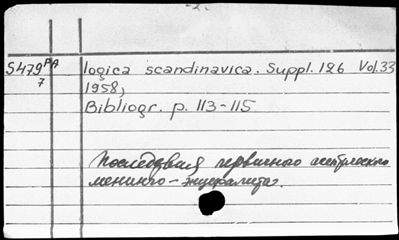 - 2. -
S479 PA logica scandinavica. Suppl. 126 Vol. 33
7 1958,
Bibliogr. p. 113-115
Последствия первичного асептического
менинго-энцефалита.